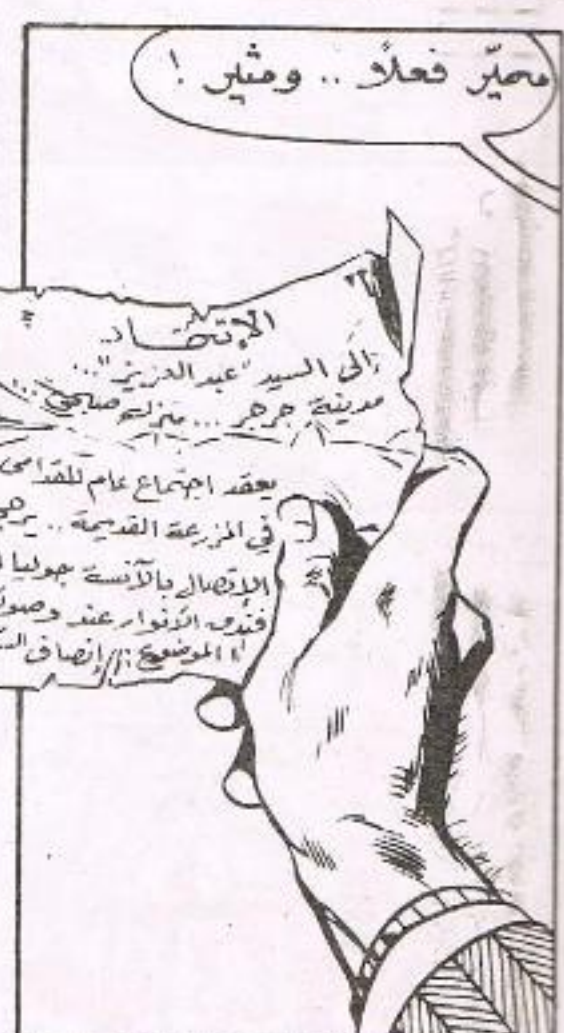 محيّر فعلاً .. ومثير !
الإتحاد
إلى السيد "عبد العزيز"...
مدينة جرجر ... منزله صيفي ..
يعقد اجتماع عام للقدامى
في المزرعة القديمة .. يرجى
الإتصال بالآنسة جوليا
فندق الأنوار عند وصول
الموضوع : إنصاف